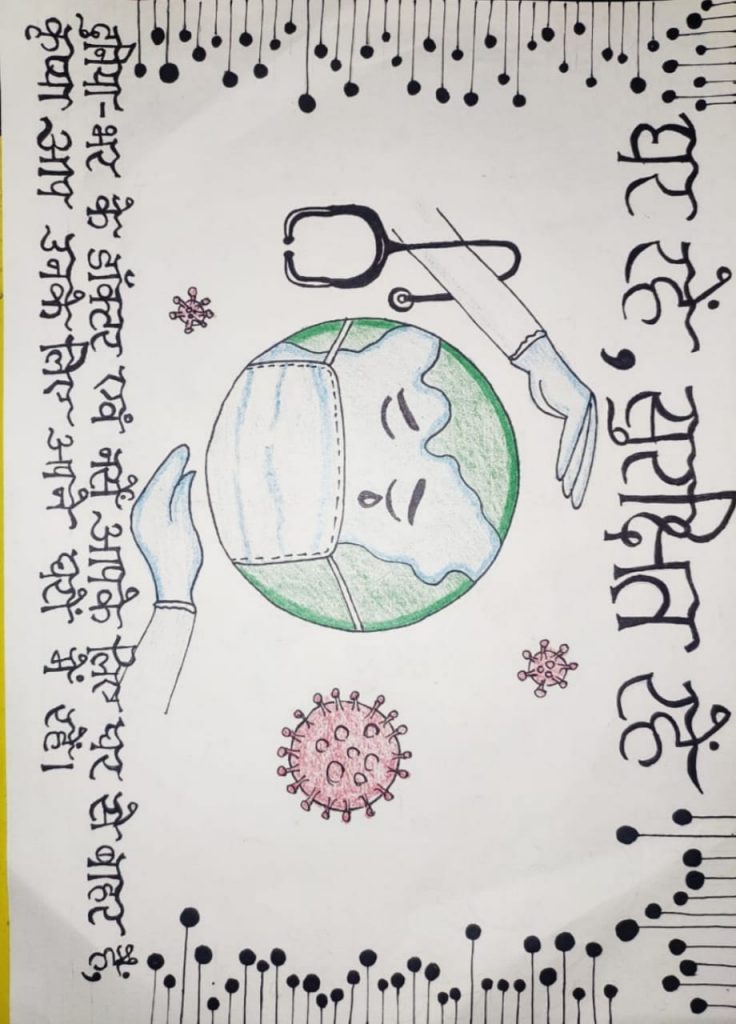 घर रहें, सुरक्षित रहें
दुनिया-भर के डॉक्टर एवं नर्सें आपके लिए घर से बाहर हैं,
कृप्या आप उनके लिए अपने घरों में रहें।